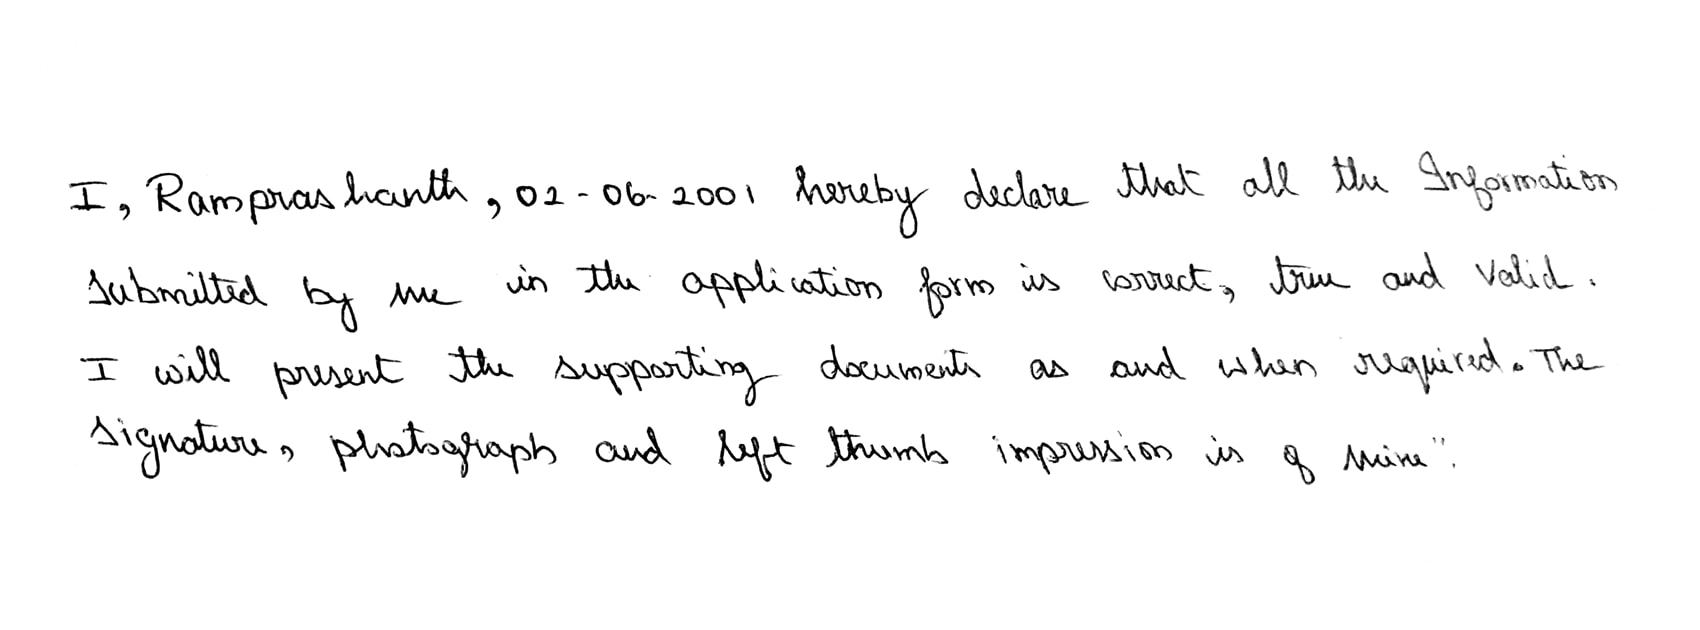 I, Ramprashanth, 02-06-2001 hereby declare that all the Information
submitted by me in the application form is correct, true and valid.
I will present the supporting documents as and when required. The
signature, photograph and left thumb impression is of mine".